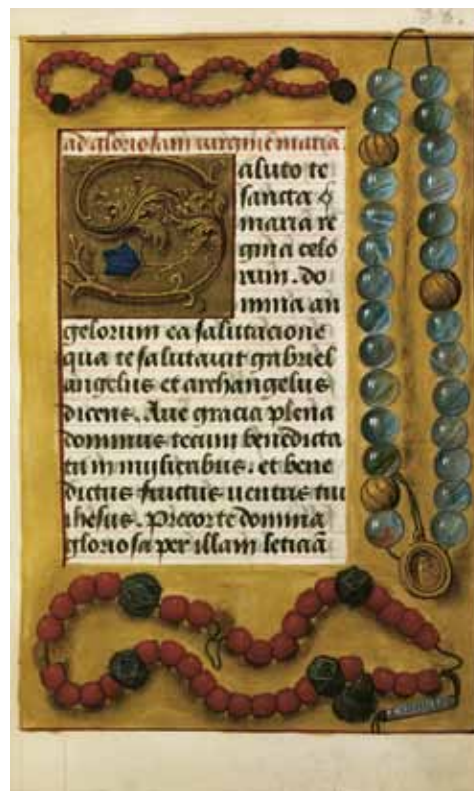 ad gloriosam virginē maria.
Saluto te
sancta
maria re
gina celo
rum. do
mina an
gelorum ea salutacione
qua te salutauit gabriel
angelus et archangelus
dicens. Aue gracia plena
dominus tecum benedicta
tu in mulieribus. et bene
dictus fructus uentris tui
ihesus. Precor te domina
gloriosa per illam leticiā